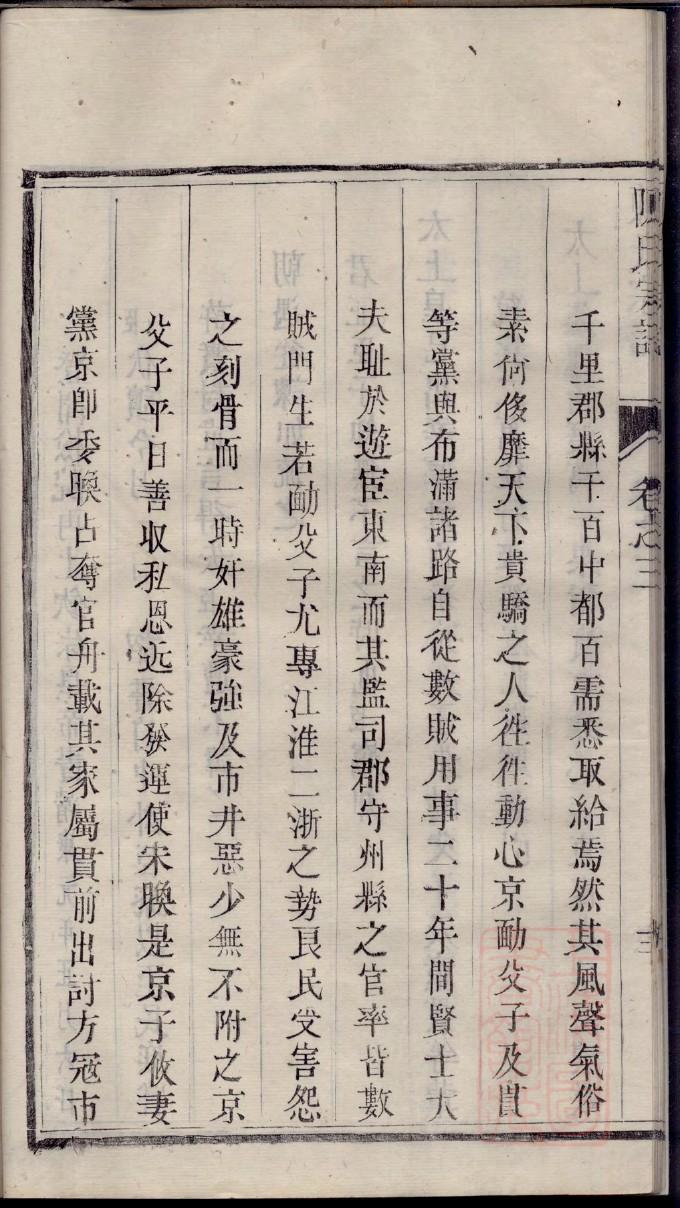 陳氏宗誌
卷之三
三
千里郡縣千百中都百需悉取給焉然其風聲氣俗
素尚侈靡天下貴驕之人徃徃動心京勔父子及貫
等黨與布滿諸路自從數賊用事二十年間賢士大
夫耻於遊宦東南而其監司郡守州縣之官率皆數
賊門生若勔父子尤專江淮二浙之勢良民受害怨
之刻骨而一時奸雄豪強及市井惡少無不附之京
父子平日善收私恩近除發運使宋㬇是京子攸妻
黨京師委㬇占奪官舟載其家屬貫前出討方冦市